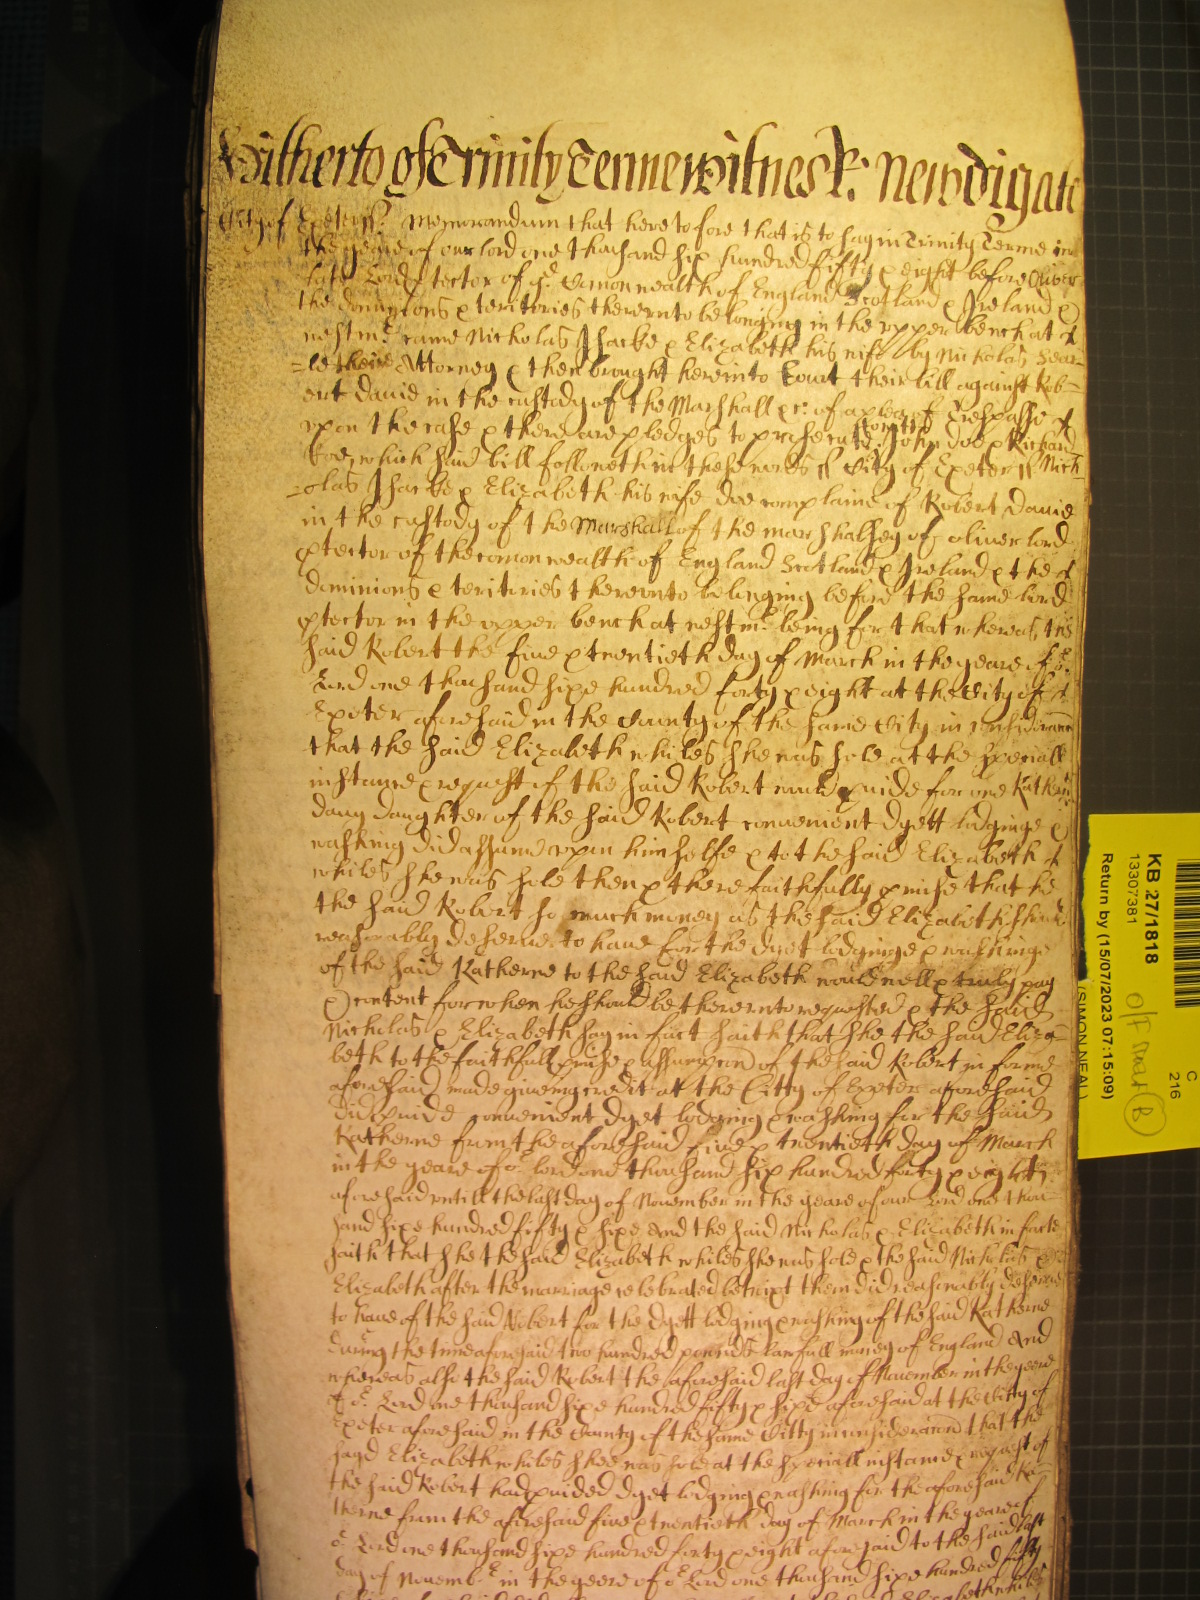 Hitherto of Trinity Terme Witnes R: Newdigate
City of Exeter ss. Memorandum that heretofore that is to say in Trinity Terme in
the yeare of our lord one thousand six hundred fifty & eight before Oliver
late Lord ptector of ye Comonwealth of England Scotland & Ireland &
the dominions & teritories thereunto belonging in the upper bench at
westmr came Nicholas Isacke & Elizabeth his wife by Nicholas Sear-
=le their Attorney & then brought here into Court their bill against Rob-
ert Davie in the custody of the Marshall &c: of a plea of Trespasse
upon the case & there are pledges to prosecute John doe & Richard
Roe, which said bill followeth in these words ss City of Exeter ss Nich
=olas Isacke & Elizabeth his wife doe complaine of Robert Davie
in the custody of the Marshall of the marshalsey of oliver lord
ptector of the comonwealth of England Scotland & Ireland & the
dominions & teritories thereunto belonging before the same lord
ptector in the upper bench at westmr being for that whereas the
said Robert the five & twentieth day of March in the yeare of or
Lord one thousand sixe hundred forty & eight at the City of
Exeter aforesaid in the County of the same City in consideracon
that the said Elizabeth whiles she was sole at the speciall
instance & request of the said Robert would pvide for one Katherine
Davy daughter of the said Robert convenient dyett lodginge &
washing did assume upon himselfe & to the said Elizabeth
whiles she was sole then & there faithfully pmise that he
the said Robert so much money as the said Elizabeth should
reasonably deserve to have for the dyet lodginge & washinge
of the said Katherne to the said Elizabeth would well & truly pay
& content for when he should be thereunto requested & the said
Nicholas & Elizabeth say in fact saith that she the said Eliza-
beth to the faithfull pmise & assumpcon of the said Robert in forme
aforesaid made giveing credit at the Citty of Exeter aforesaid
did pvide convenient dyet lodging & washing for the said
Katherne from the aforesaid five & twentieth day of March
in the yeare of or lord one thousand six hundred forty & eight
aforesaid untill the last day of November in the yeare of our Lord one thou-
sand sixe hundred fifty & sixe And the said Nicholas & Elizabeth in facte
saith that she the said Elizabeth whiles she was sole & the said Nicholas &
Elizabeth after the marriage celebrated betwixt them did reasonably deserve
to have of the said Robert for the dyett lodging & washing of the said Katherne
during the time aforesaid two hundred pounds lawfull money of England And
whereas also the said Robert the aforesaid last day of November in the yeere
of or Lord one thousand sixe hundred fifty & sixe aforesaid at the Citty of
Exeter aforesaid in the County of the same Citty in consideracon that the
sayd Elizabeth whiles shee was sole at the speciall instance & request of
the said Robert had pvided dyet lodging & washing for the aforesaid Ka-
therne from the aforesaid five & twentieth day of March in the yeare of
or Lord one thousand sixe hundred forty & eight aforesaid to the said last
day of Novembr in the yeere of or Lord one thousand sixe hundred fifty
KB 27/1818
13307381
Return by (15/07/2023 07:15:09)
(SIMON NEAL)
C
216
B